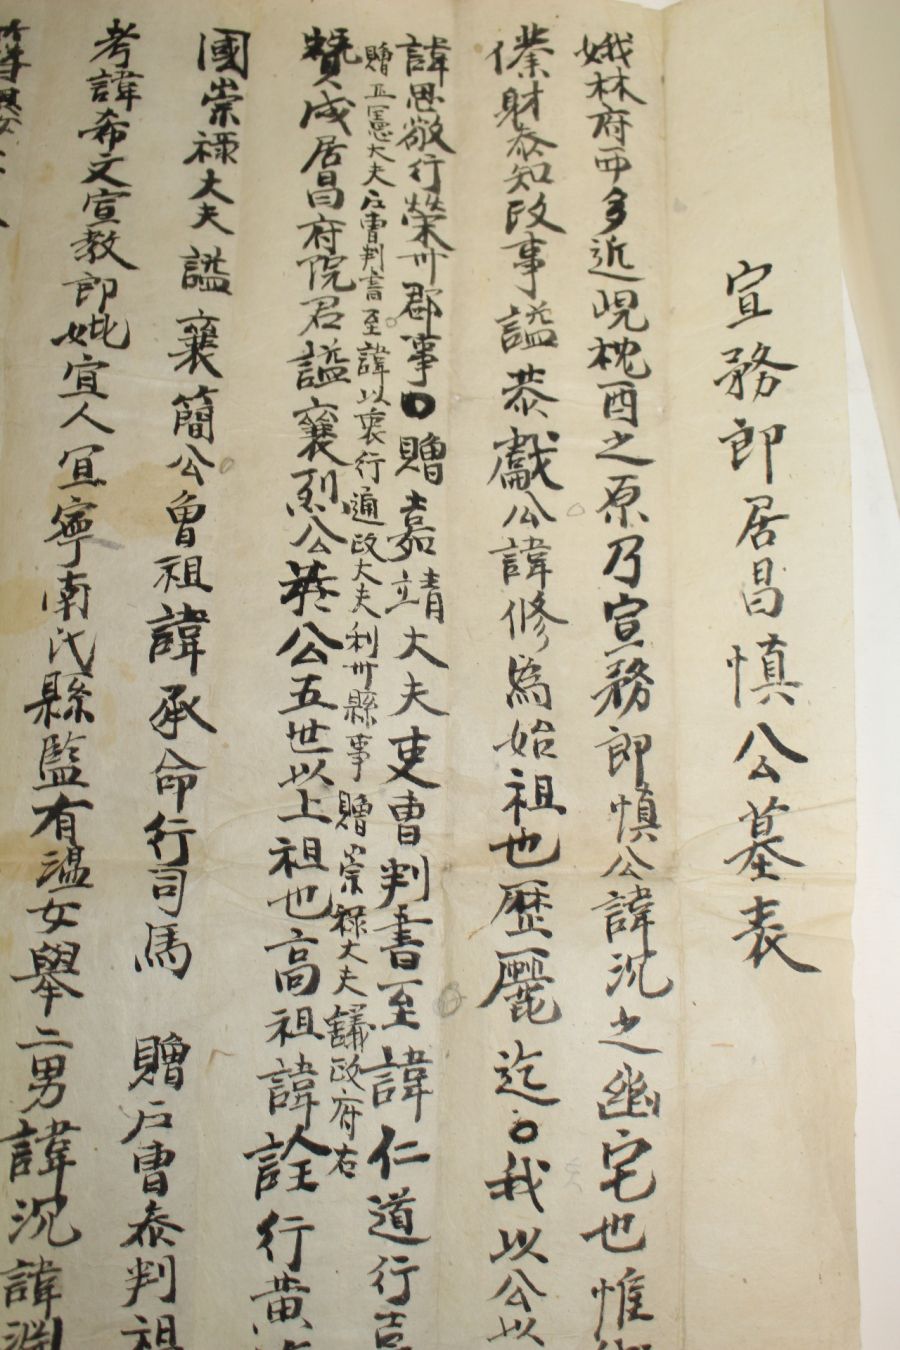 宣務郎居昌愼公墓表
娥林府西多近峴枕酉之原乃宣務郎愼公諱沉之幽宅也惟
財叅知政事謚恭獻公諱修爲始祖也歷麗迄○我以公以
諱思敬行榮州郡事○贈嘉靖大夫吏曹判書至諱仁道行
贈正憲大夫戶曹判書至諱以衷行通政大夫利州縣事 贈崇祿大夫議政府右
贊成居昌府院君謚襄烈公於公五世以上祖也高祖諱詮行黃
國崇祿大夫謚襄簡公曾祖諱承命行司馬 贈戶曹叅判祖
考諱希文宣教郎妣宜人宜寧南氏縣監有溫女擧二男諱沉諱淵